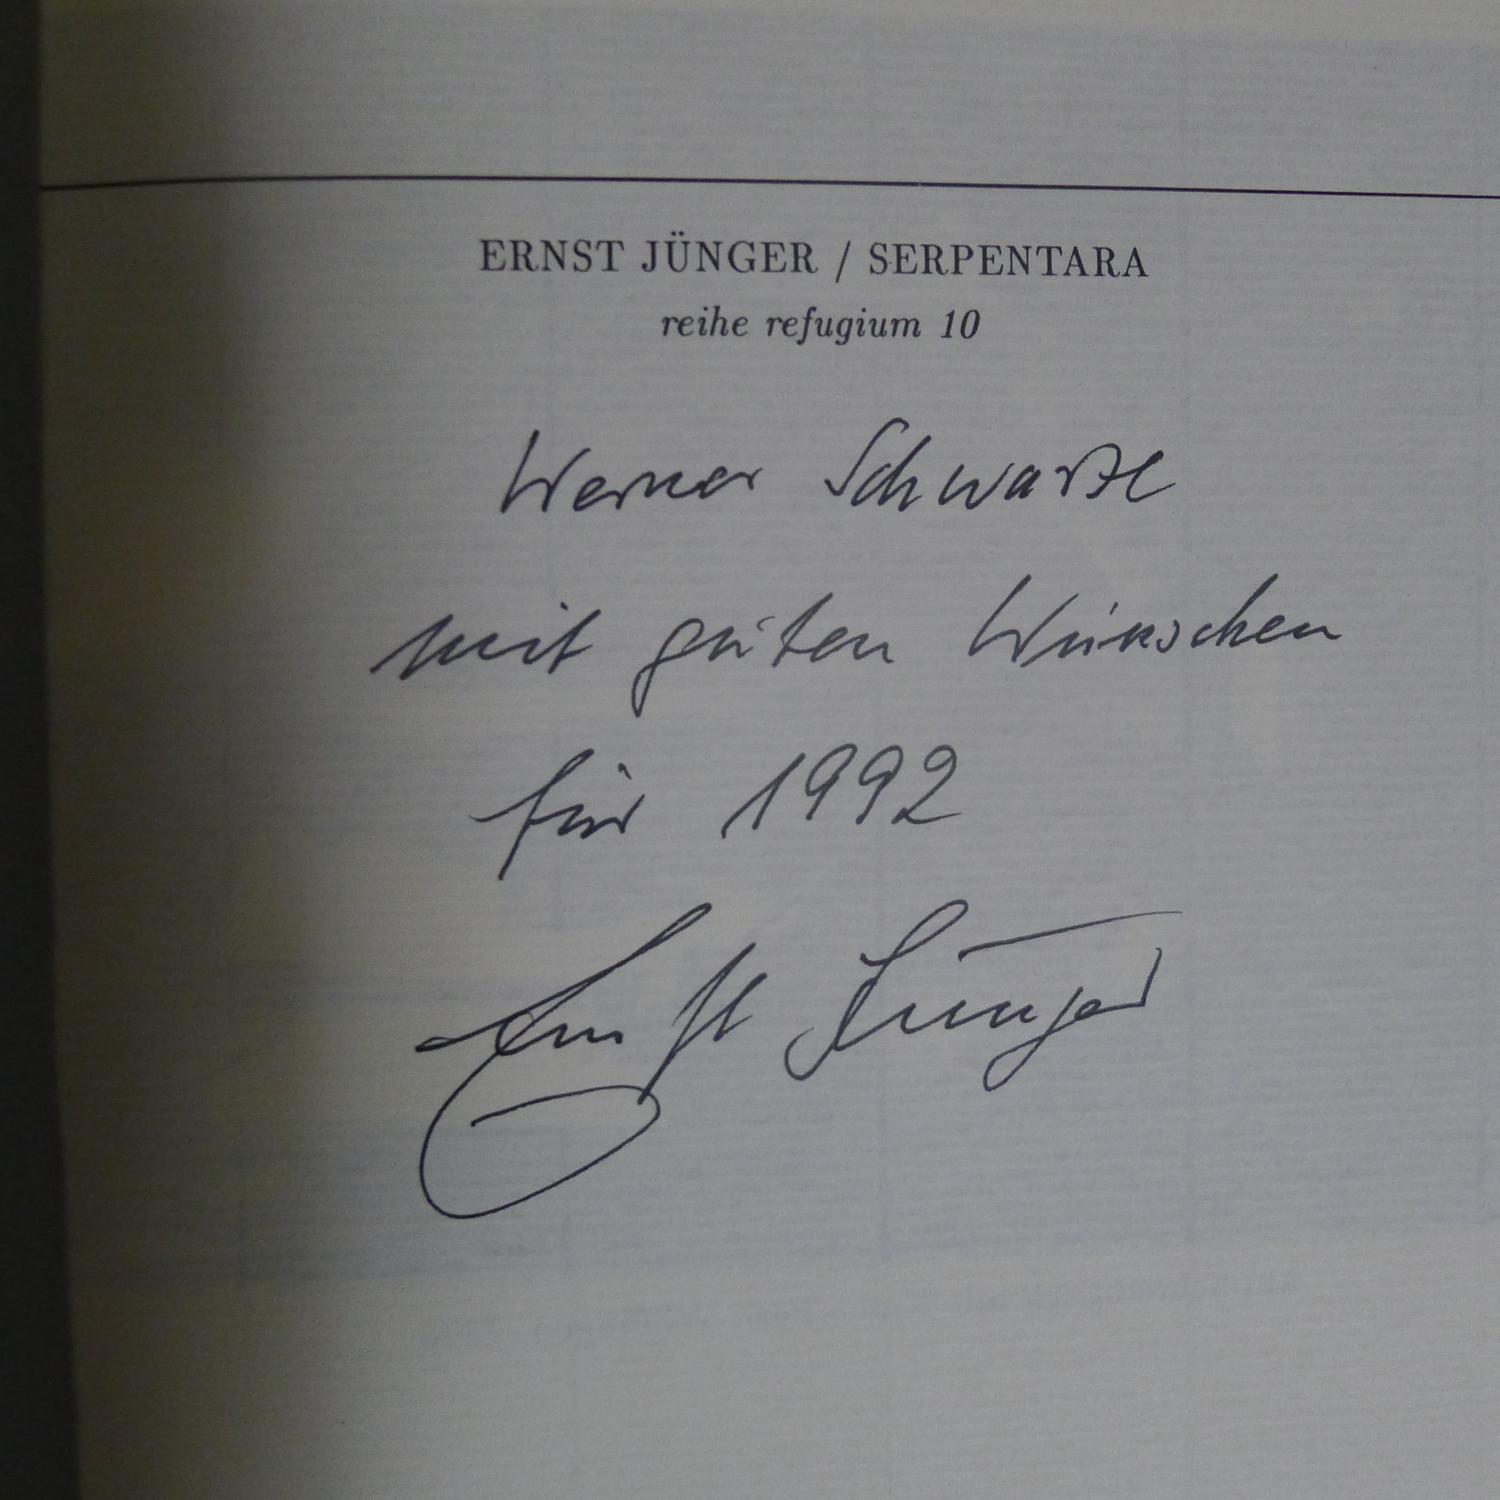 ERNST JÜNGER / SERPENTARA
reihe refugium 10
Werner Schwarze
mit guten Wünschen
für 1992
Ernst Jünger